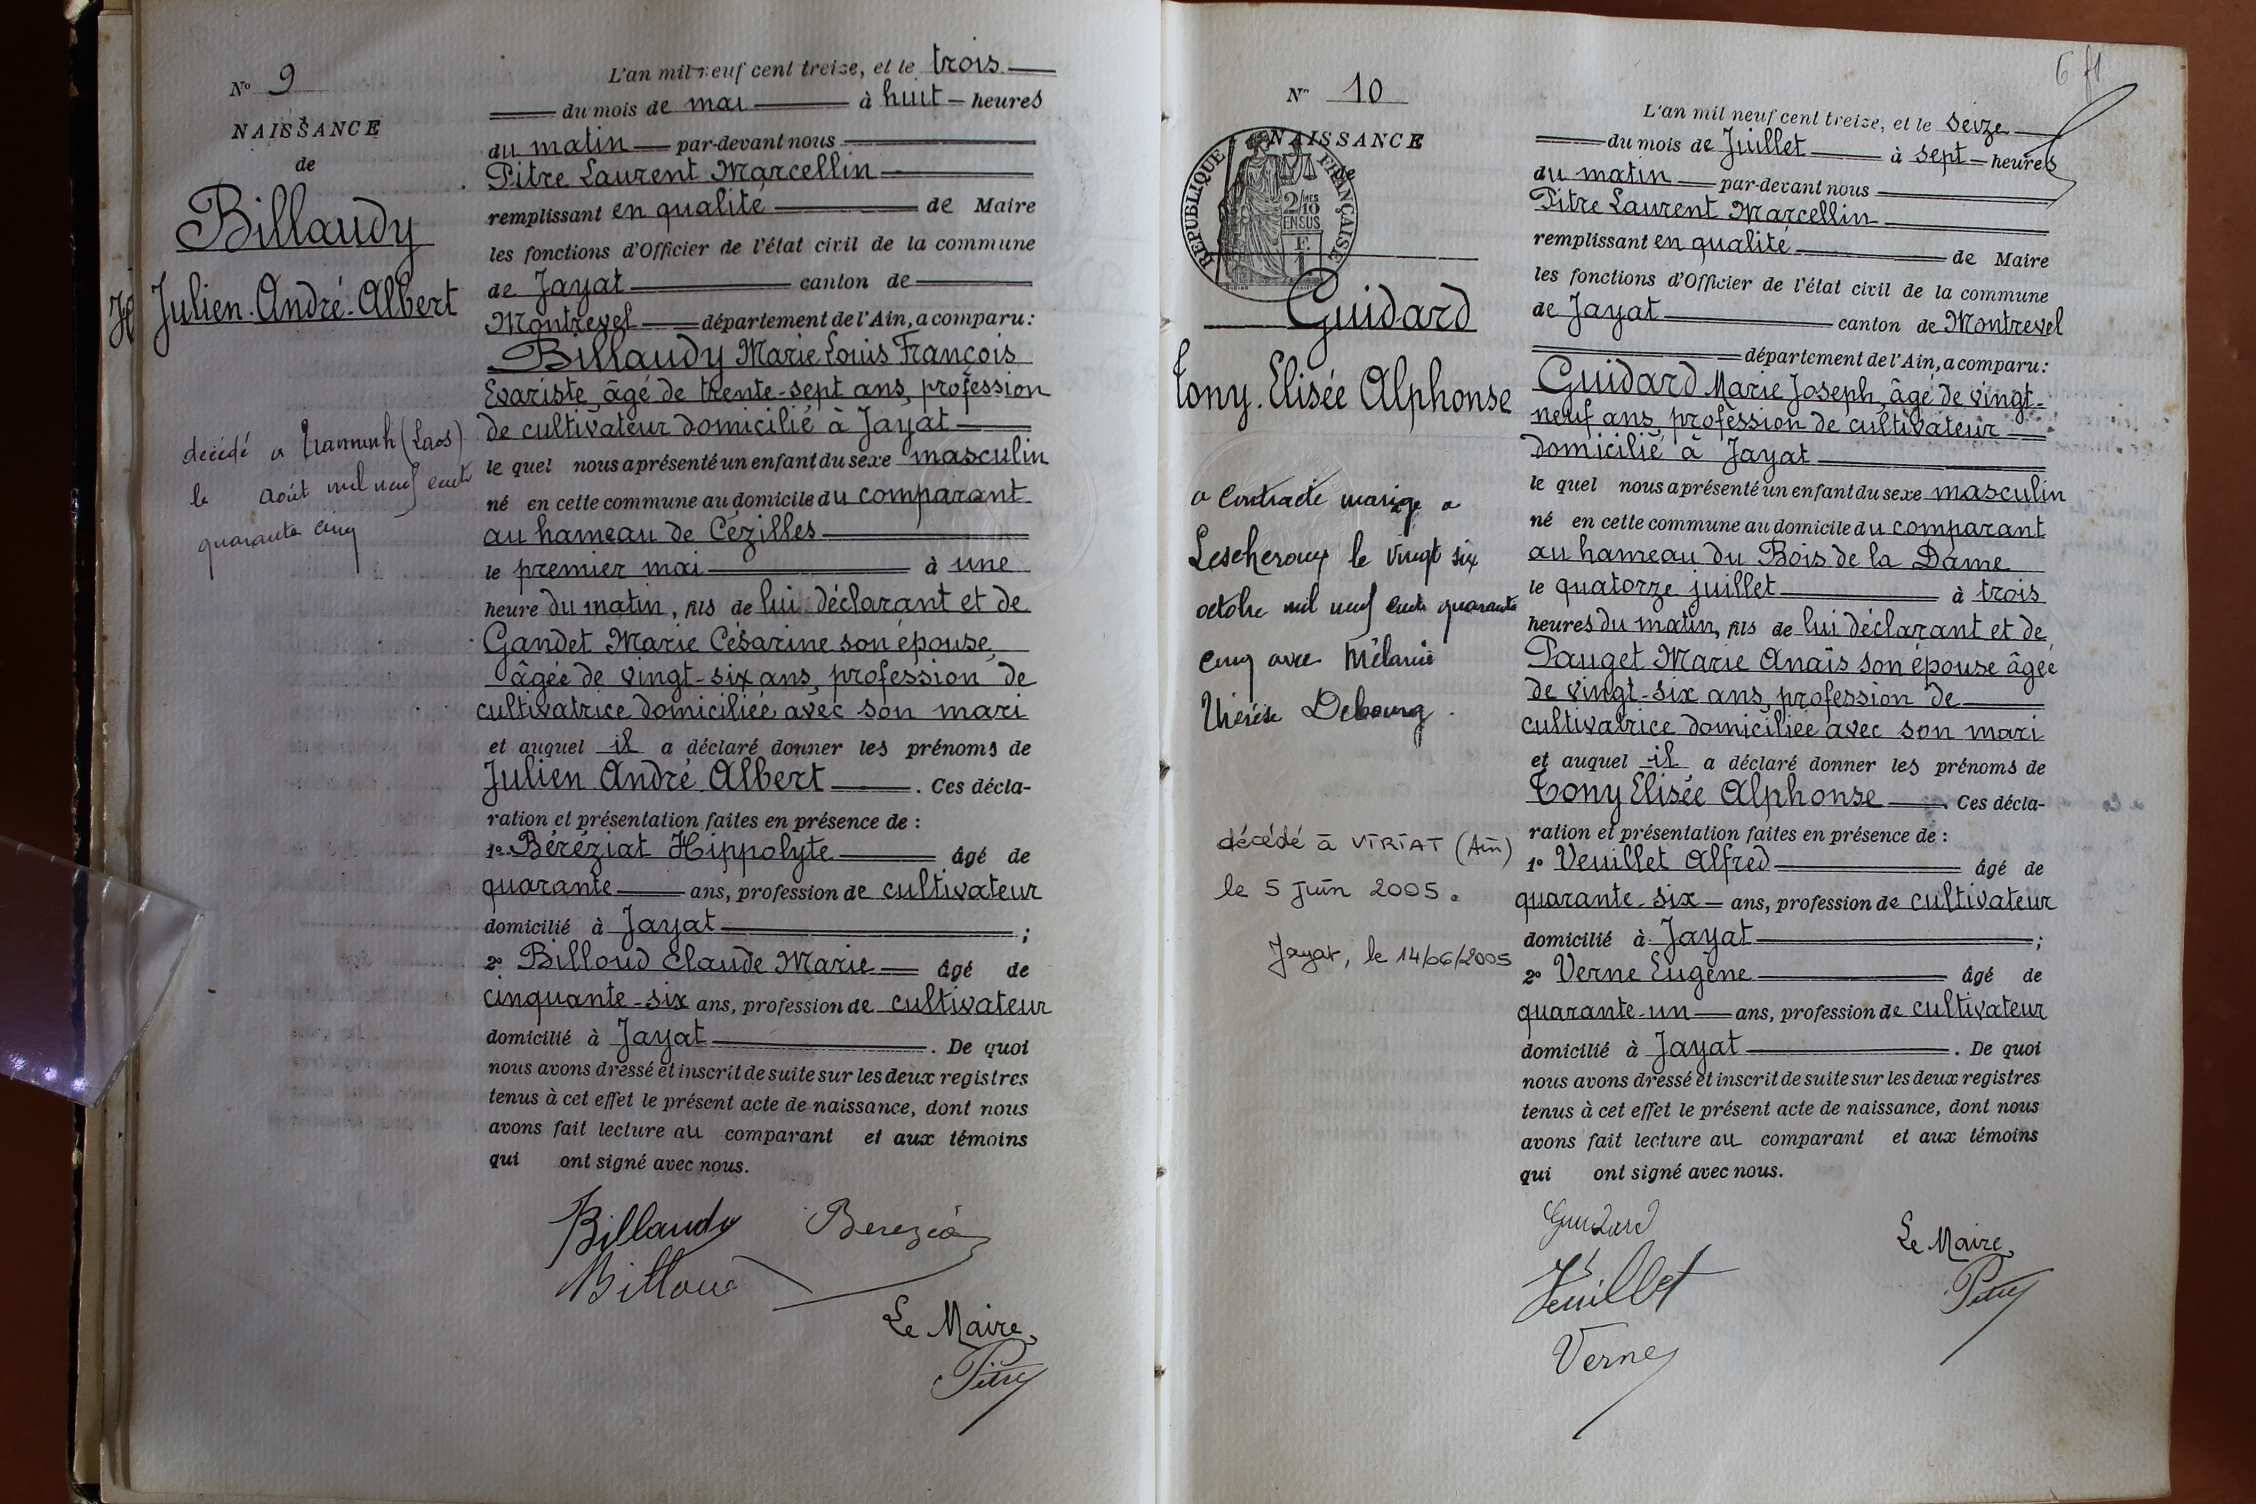 N° 9
NAISSANCE
de
Billaudy
Julien. André. Albert
décédé a Tranninh (Laos)
le août mil neuf cent
quarante cinq
L'an mil neuf cent treize, et le trois
du mois de mai à huit heures
du matin par-devant nous
Pitre Laurent Marcellin
remplissant en qualité de Maire
les fonctions d'Officier de l'état civil de la commune
de Jayat canton de
Montrevel département de l'Ain, a comparu:
Billaudy Marie Louis François
Evariste, âgé de trente-sept ans, profession
de cultivateur domicilié à Jayat
le quel nous a présenté un enfant du sexe masculin
né en cette commune au domicile du comparant
au hameau de Cézilles
le premier mai à une
heure du matin, fils de lui déclarant et de
Gandet Marie Césarine son épouse,
âgée de vingt-six ans, profession de
cultivatrice domiciliée avec son mari
et auquel il a déclaré donner les prénoms de
Julien André Albert. Ces décla-
ration et présentation faites en présence de :
1° Béréziat Hippolyte âgé de
quarante ans, profession de cultivateur
domicilié à Jayat ;
2° Billoud Claude Marie âgé de
cinquante-six ans, profession de cultivateur
domicilié à Jayat. De quoi
nous avons dressé et inscrit de suite sur les deux registres
tenus à cet effet le présent acte de naissance, dont nous
avons fait lecture au comparant et aux témoins
qui ont signé avec nous.
Billaudy Berezia
Billoud
Le Maire,
Pitre
6 f1
N° 10
NAISSANCE
de
REPUBLIQUE FRANÇAISE
2/10 EN SUS
1 F.
Guidard
Tony. Elisée Alphonse
a contracté mariage a
Lescheroux le vingt six
octobre mil neuf cent quarante
cinq avec Mélanie
Thérèse Debourg.
décédé à VIRIAT (Ain)
le 5 juin 2005.
Jayat, le 14/06/2005
L'an mil neuf cent treize, et le seize
du mois de Juillet à sept heures
du matin par-devant nous
Pitre Laurent Marcellin
remplissant en qualité de Maire
les fonctions d'Officier de l'état civil de la commune
de Jayat canton de Montrevel
département de l'Ain, a comparu:
Guidard Marie Joseph, âgé de vingt-
neuf ans, profession de cultivateur
domicilié à Jayat
le quel nous a présenté un enfant du sexe masculin
né en cette commune au domicile du comparant
au hameau du Bois de la Dame
le quatorze juillet à trois
heures du matin, fils de lui déclarant et de
Pauget Marie Anaïs son épouse âgée
de vingt-six ans, profession de
cultivatrice domiciliée avec son mari
et auquel il a déclaré donner les prénoms de
Tony Elisée Alphonse. Ces décla-
ration et présentation faites en présence de :
1° Veuillet Alfred âgé de
quarante-six ans, profession de cultivateur
domicilié à Jayat ;
2° Verne Eugène âgé de
quarante-un ans, profession de cultivateur
domicilié à Jayat. De quoi
nous avons dressé et inscrit de suite sur les deux registres
tenus à cet effet le présent acte de naissance, dont nous
avons fait lecture au comparant et aux témoins
qui ont signé avec nous.
Guidard
Veuillet
Verne
Le Maire,
Pitre